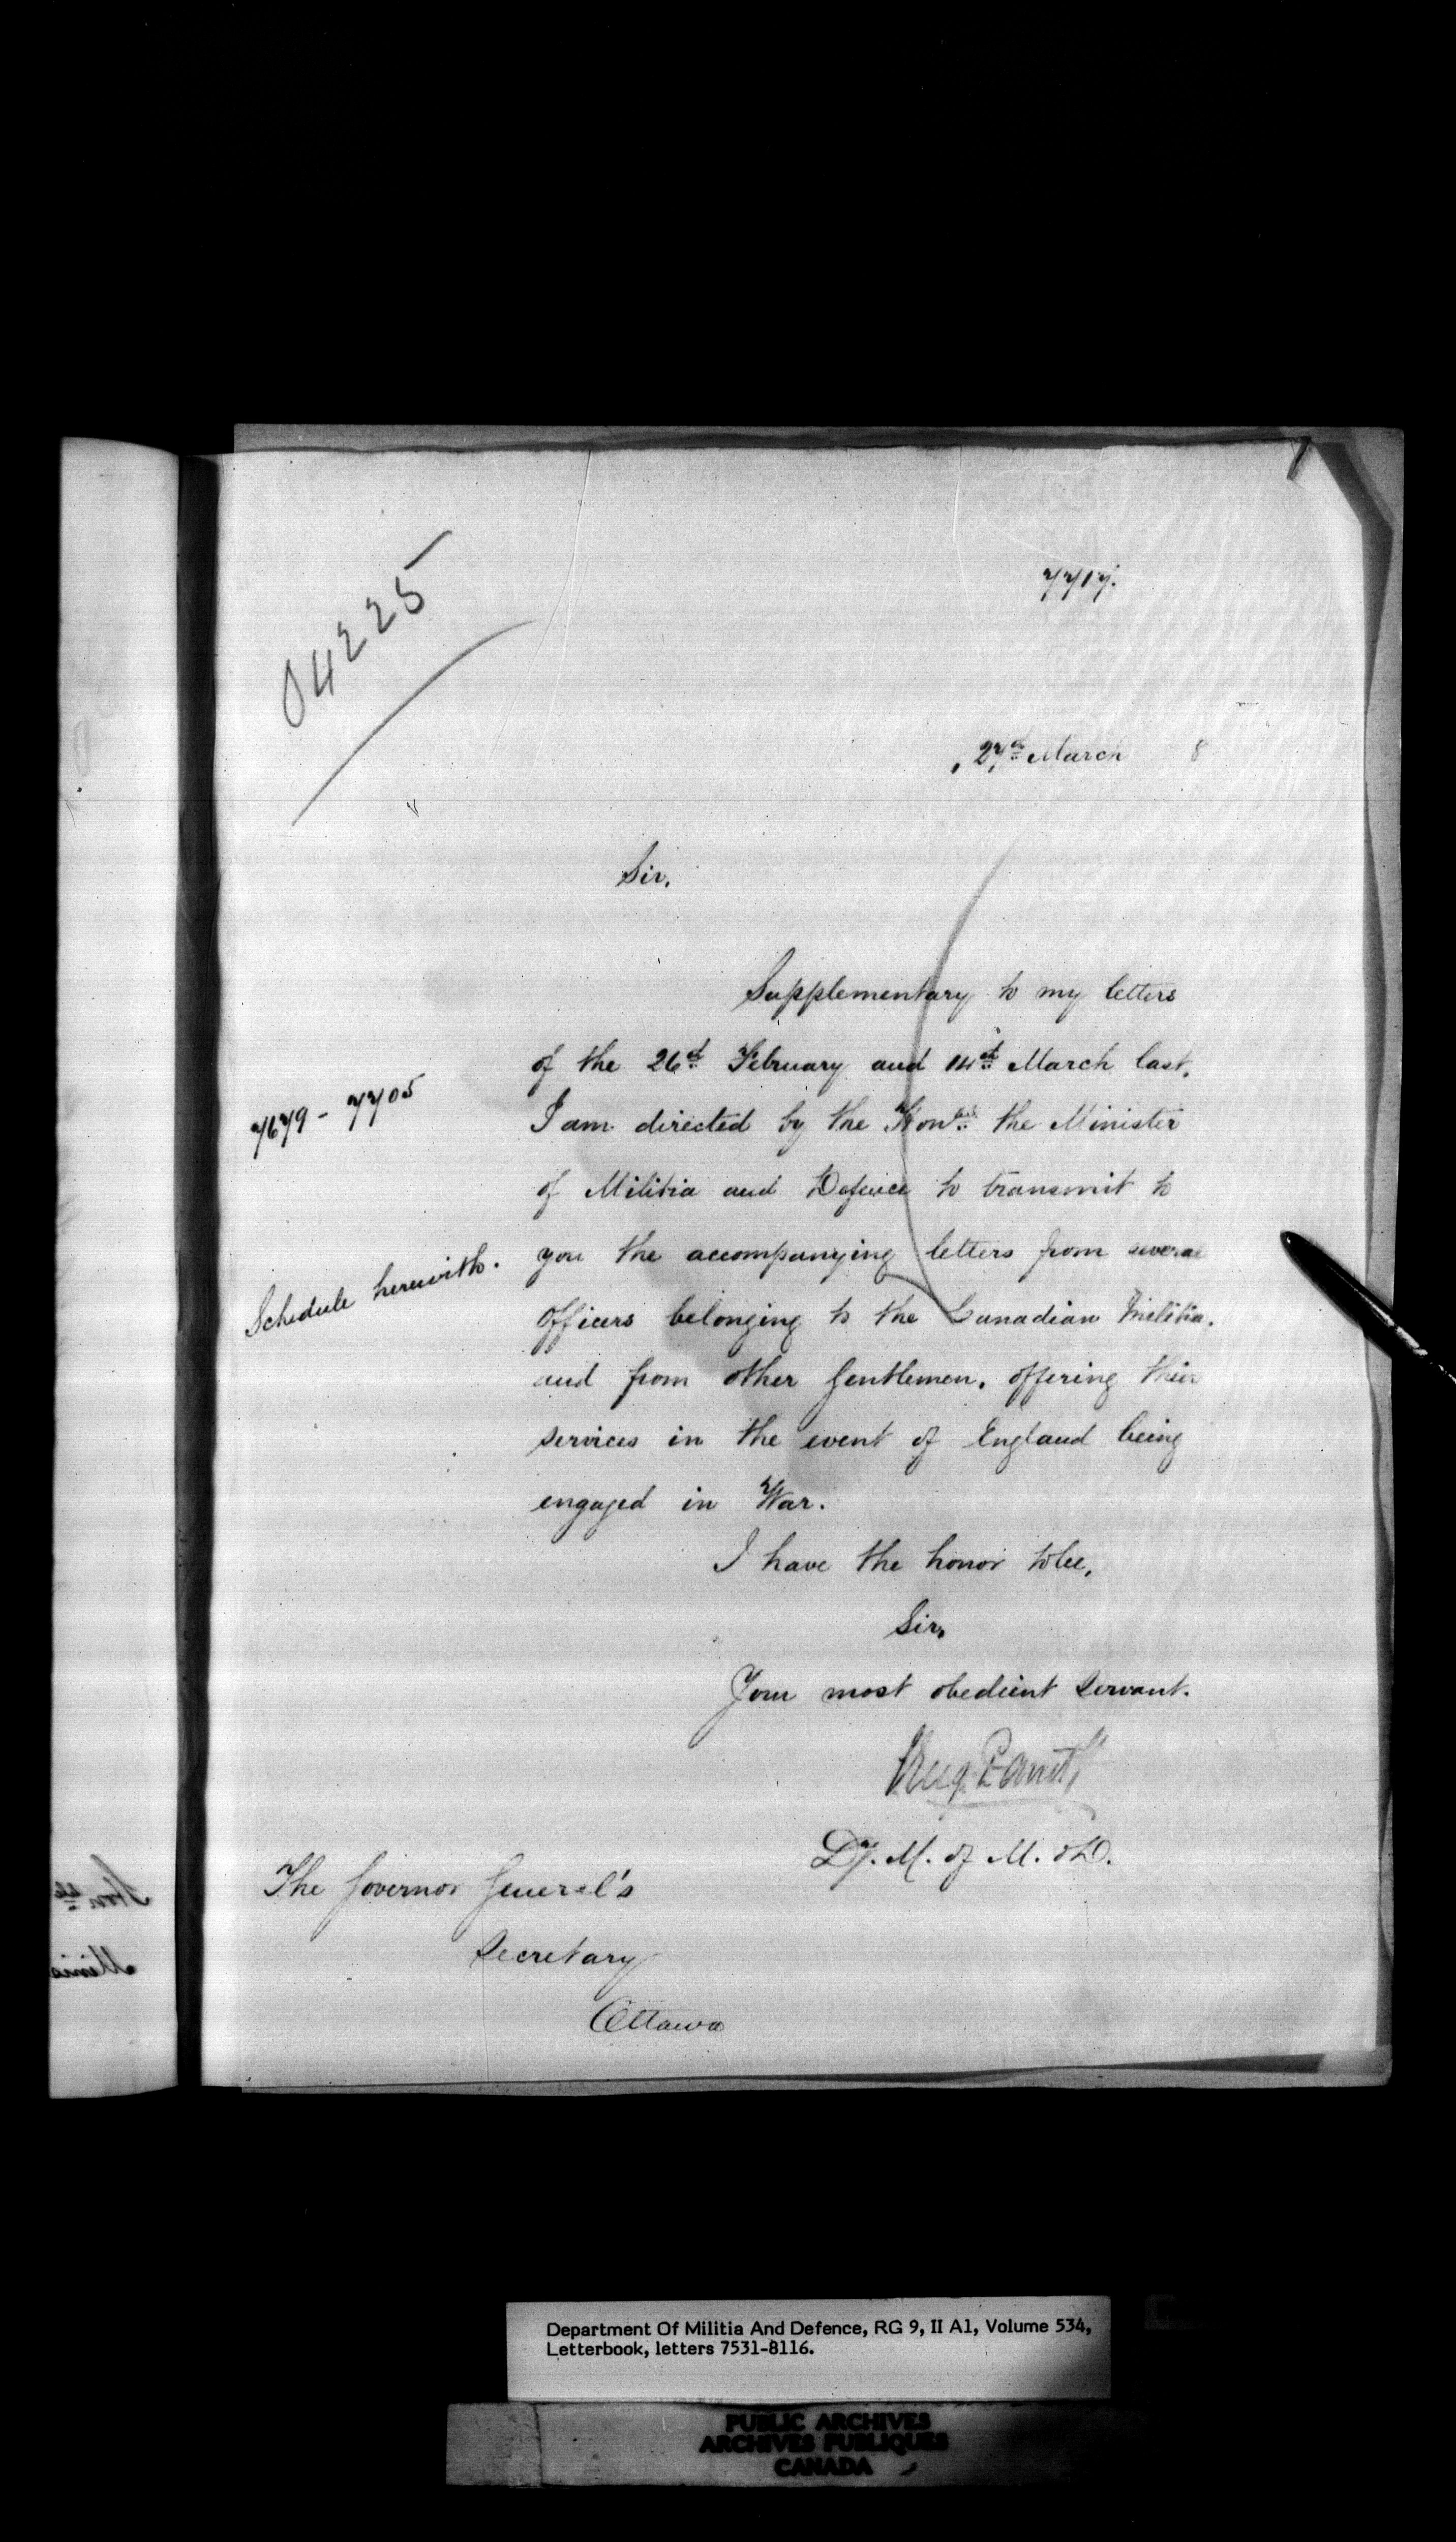 04225
7717.
27th March 8
Sir,
Supplementary to my letters
of the 26th February and 14th March last,
7679 - 7705
I am directed by the Honble the Minister
of Militia and Defence to transmit to
Schedule herewith.
you the accompanying letters from several
Officers belonging to the Canadian Militia.
and from other Gentlemen, offering their
services in the event of England being
engaged in War.
I have the honor to be,
Sir,
Your most obedient Servant.
Panet
Dy. M. of M. & D.
The Governor General's
Secretary
Ottawa
Honble
Minis
Department Of Militia And Defence, RG 9, II A1, Volume 534,
Letterbook, letters 7531-8116.
PUBLIC ARCHIVES
ARCHIVES PUBLIQUES
CANADA